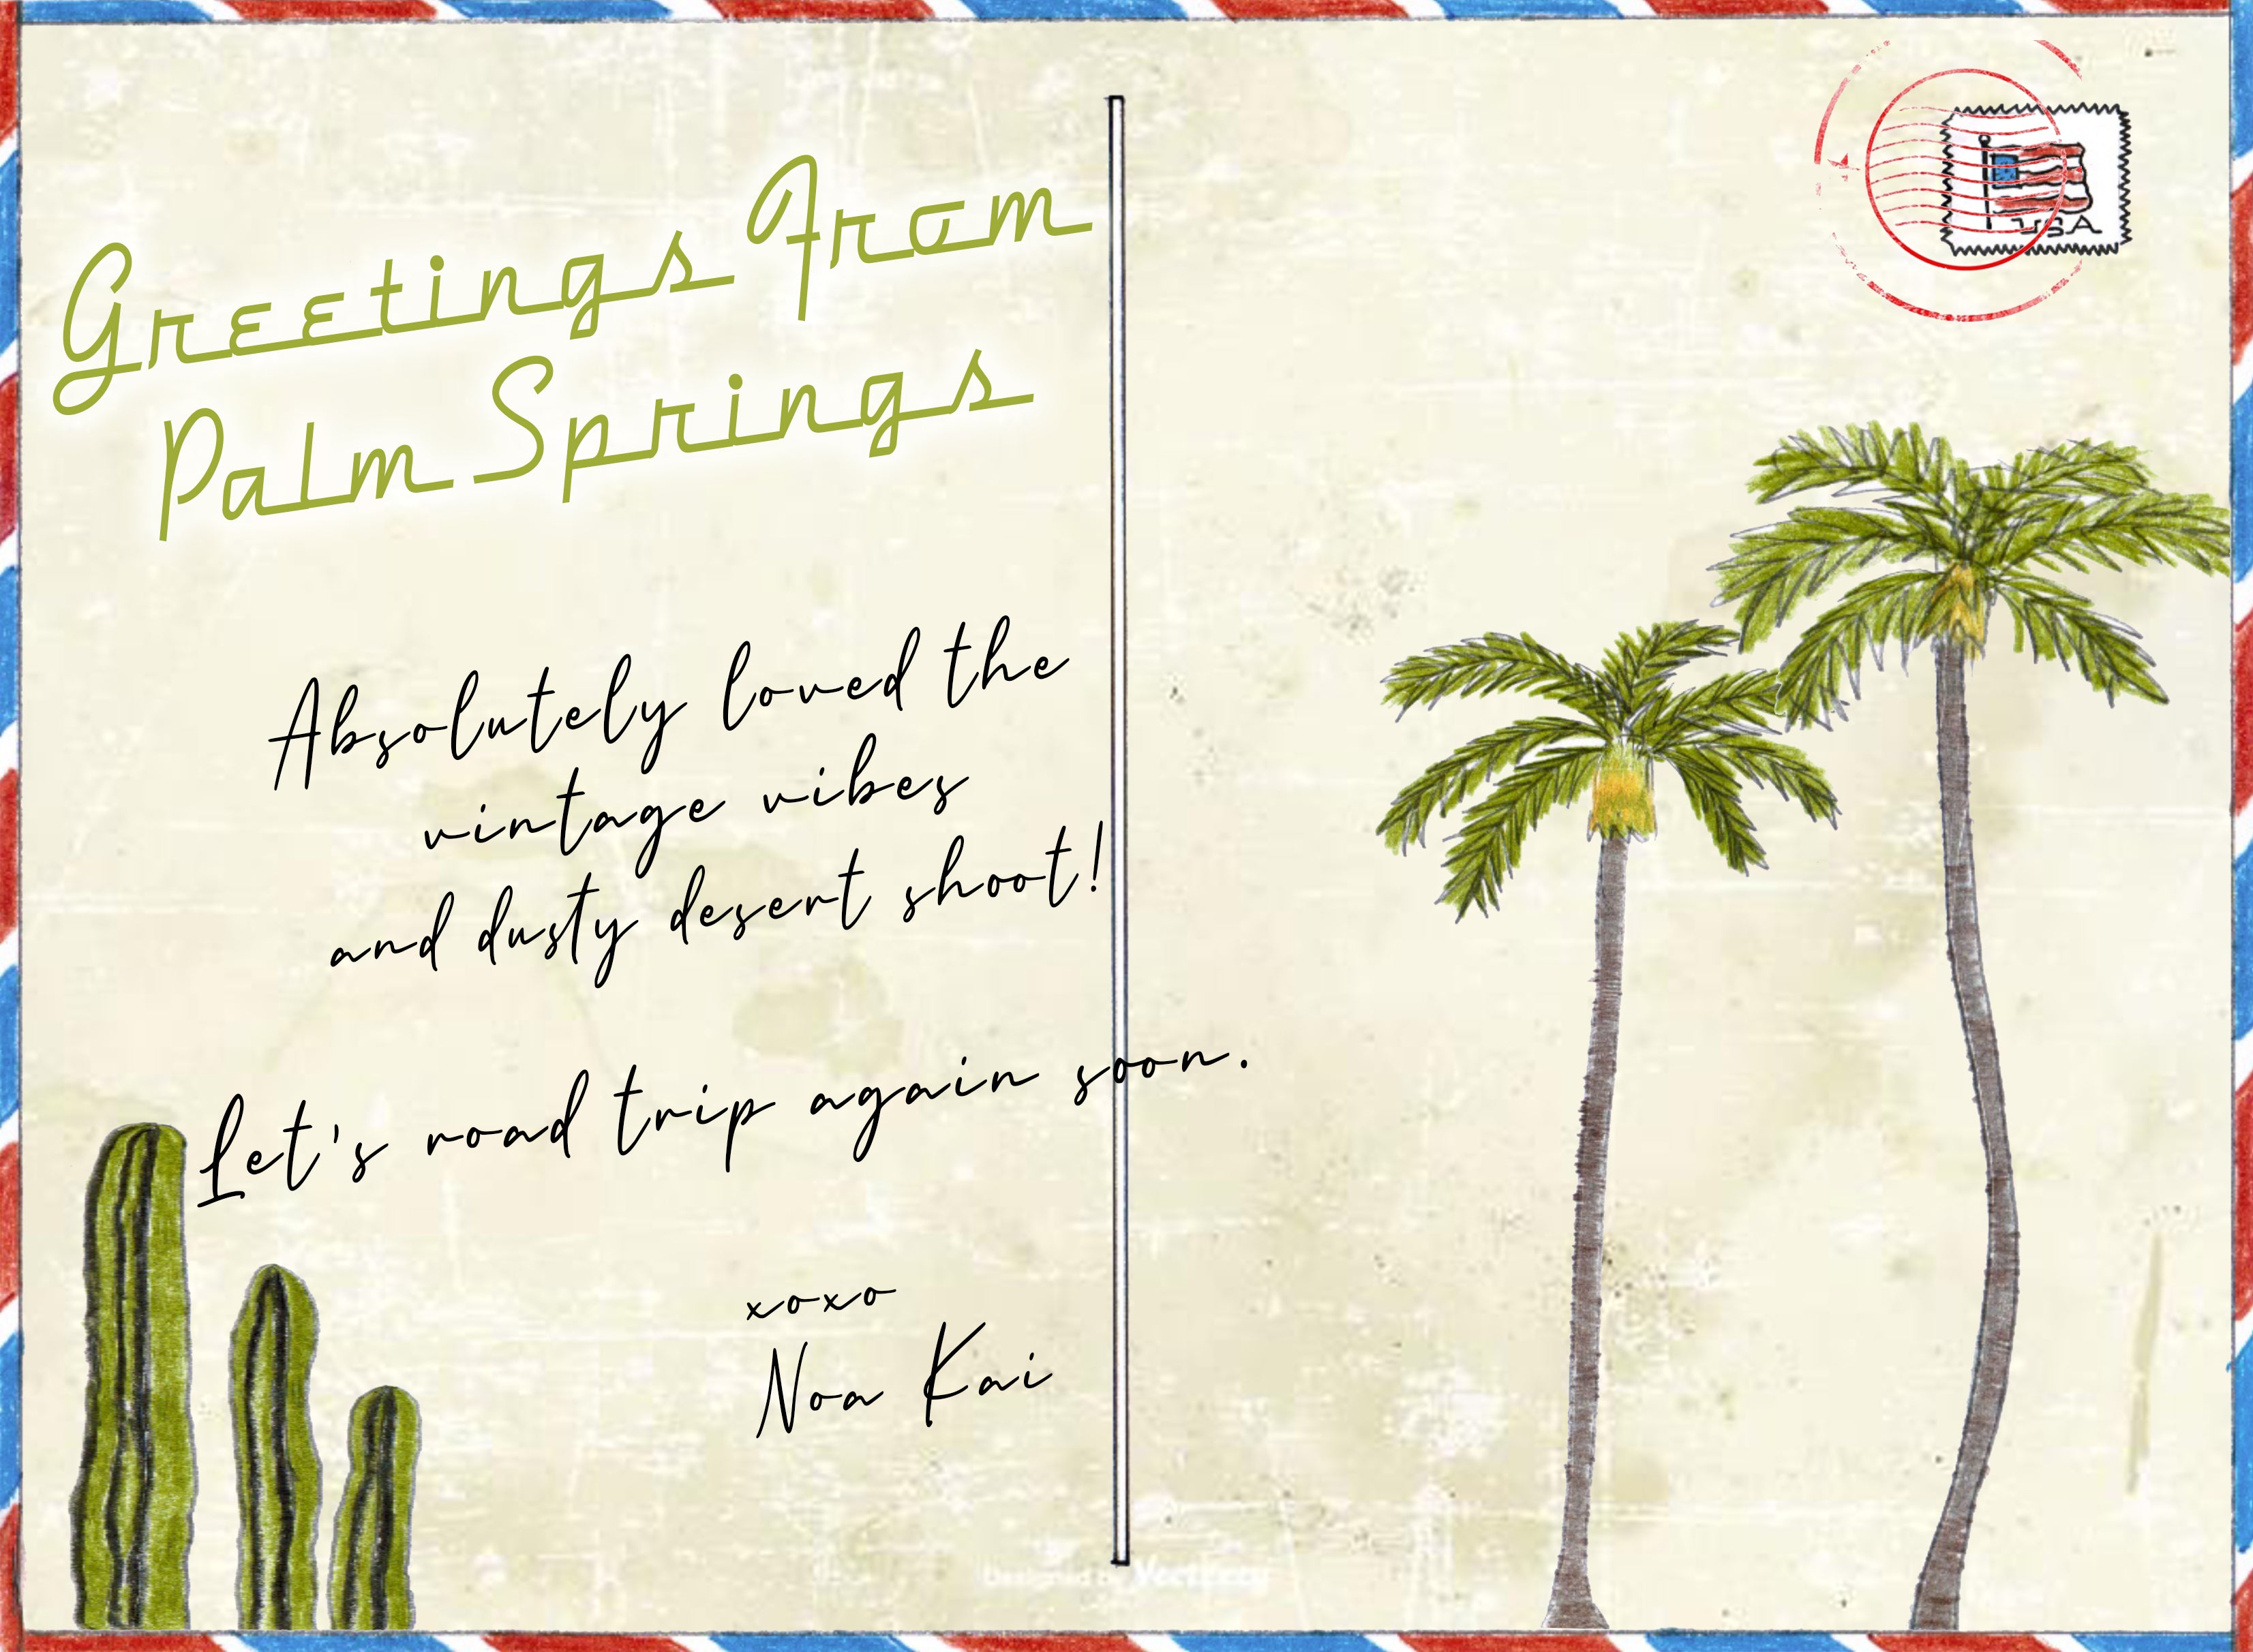 Greetings From
Palm Springs
Absolutely loved the
vintage vibes
and dusty desert shoot!
Let's road trip again soon.
xoxo
Noa Kai
USA
Designed by Vecteezy